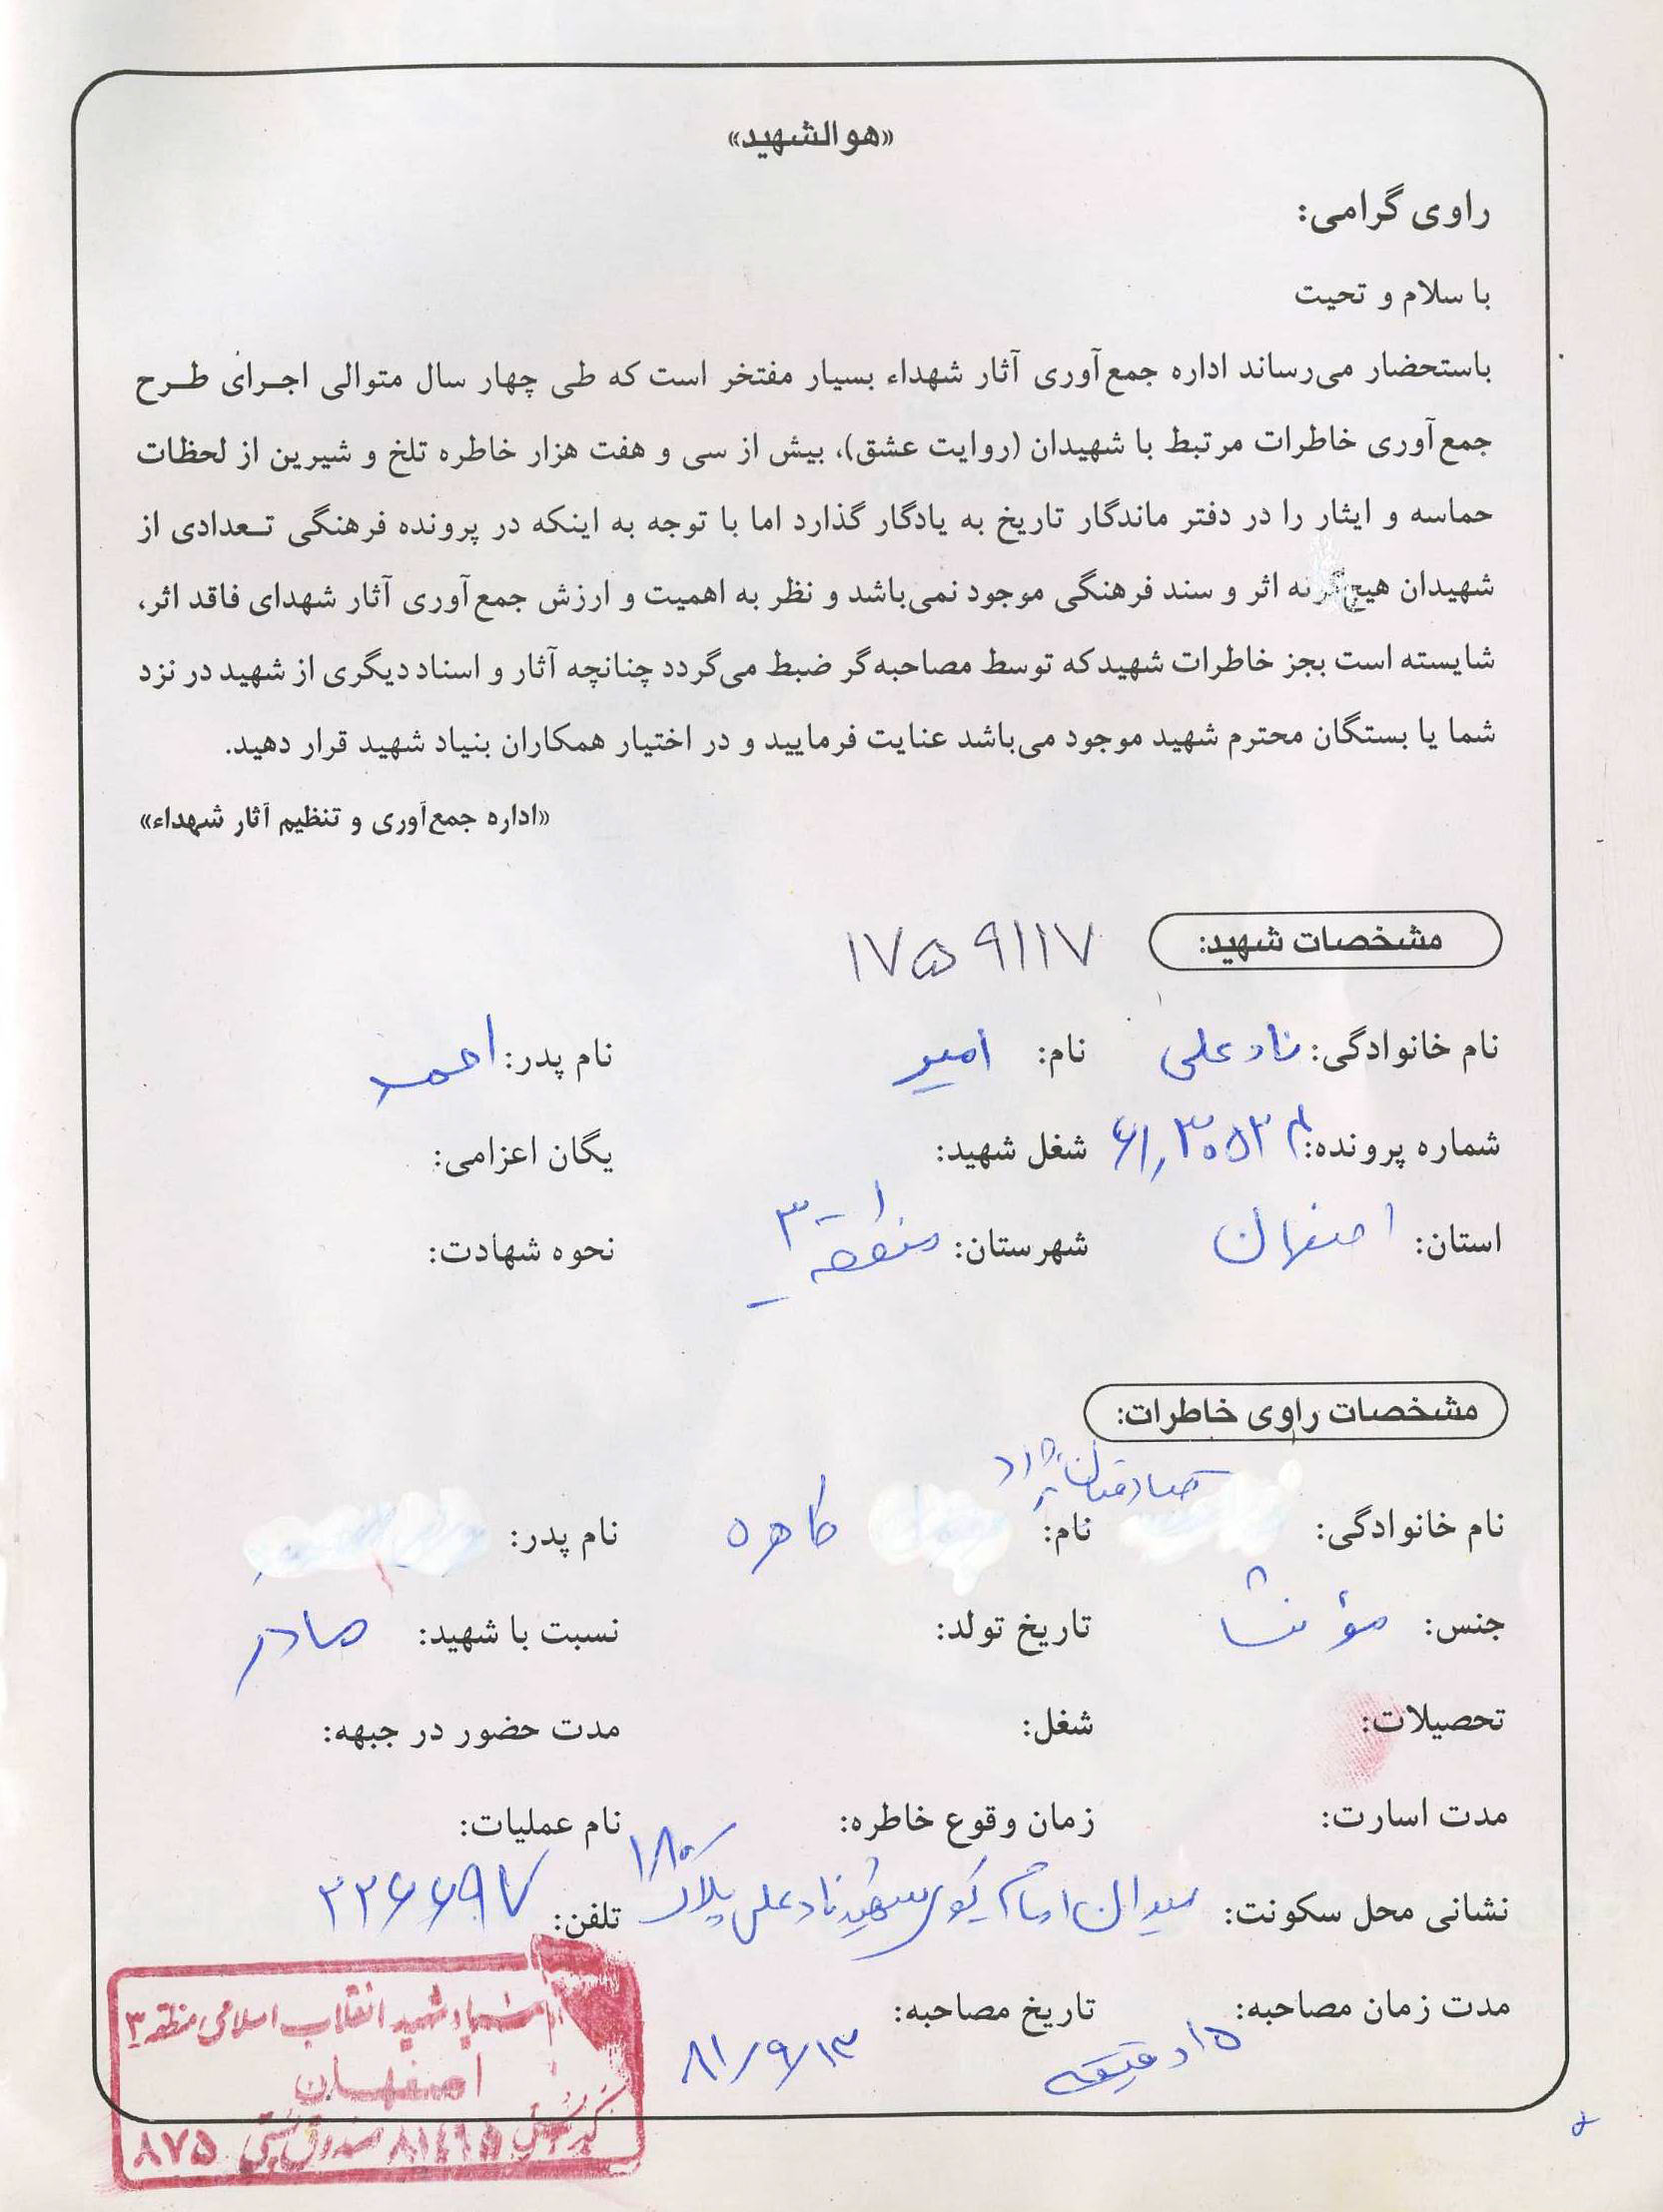 «هوالشهید»
راوی گرامی:
با سلام و تحیت
باستحضار می‌رساند اداره جمع‌آوری آثار شهداء بسیار مفتخر است که طی چهار سال متوالی اجـرای طـرح
جمع‌آوری خاطرات مرتبط با شهیدان (روایت عشق)، بیش از سی و هفت هزار خاطره تلخ و شیرین از لحظات
حماسه و ایثار را در دفتر ماندگار تاریخ به یادگار گذارد اما با توجه به اینکه در پرونده فرهنگی تـعدادی از
شهیدان هیچ‌گونه اثر و سند فرهنگی موجود نمی‌باشد و نظر به اهمیت و ارزش جمع‌آوری آثار شهدای فاقد اثر،
شایسته است بجز خاطرات شهید که توسط مصاحبه‌گر ضبط می‌گردد چنانچه آثار و اسناد دیگری از شهید در نزد
شما یا بستگان محترم شهید موجود می‌باشد عنایت فرمایید و در اختیار همکاران بنیاد شهید قرار دهید.
«اداره جمع‌آوری و تنظیم آثار شهداء»
مشخصات شهید: ۱۷۵۹۱۱۷
نام خانوادگی: نادعلی نام: امیر نام پدر: احمد
شماره پرونده: شغل شهید: یگان اعزامی:
استان: اصفهان شهرستان: منطقه ۳ نحوه شهادت:
مشخصات راوی خاطرات:
صادقیان نژاد
نام خانوادگی: نام: طاهره نام پدر:
جنس: مؤنث تاریخ تولد: نسبت با شهید: مادر
تحصیلات: شغل: مدت حضور در جبهه:
مدت اسارت: زمان وقوع خاطره: نام عملیات:
نشانی محل سکونت: میدان امام کوی شهید نادعلی پلاک ۱۸۰ تلفن: ۲۲۶۶۹۷
مدت زمان مصاحبه: ۱۵ دقیقه تاریخ مصاحبه: ۸۱/۹/۱۳
بنیاد شهید انقلاب اسلامی منطقه ۳
اصفهان
کد پستی ۸۱۴۶۵ صندوق پستی ۸۷۵